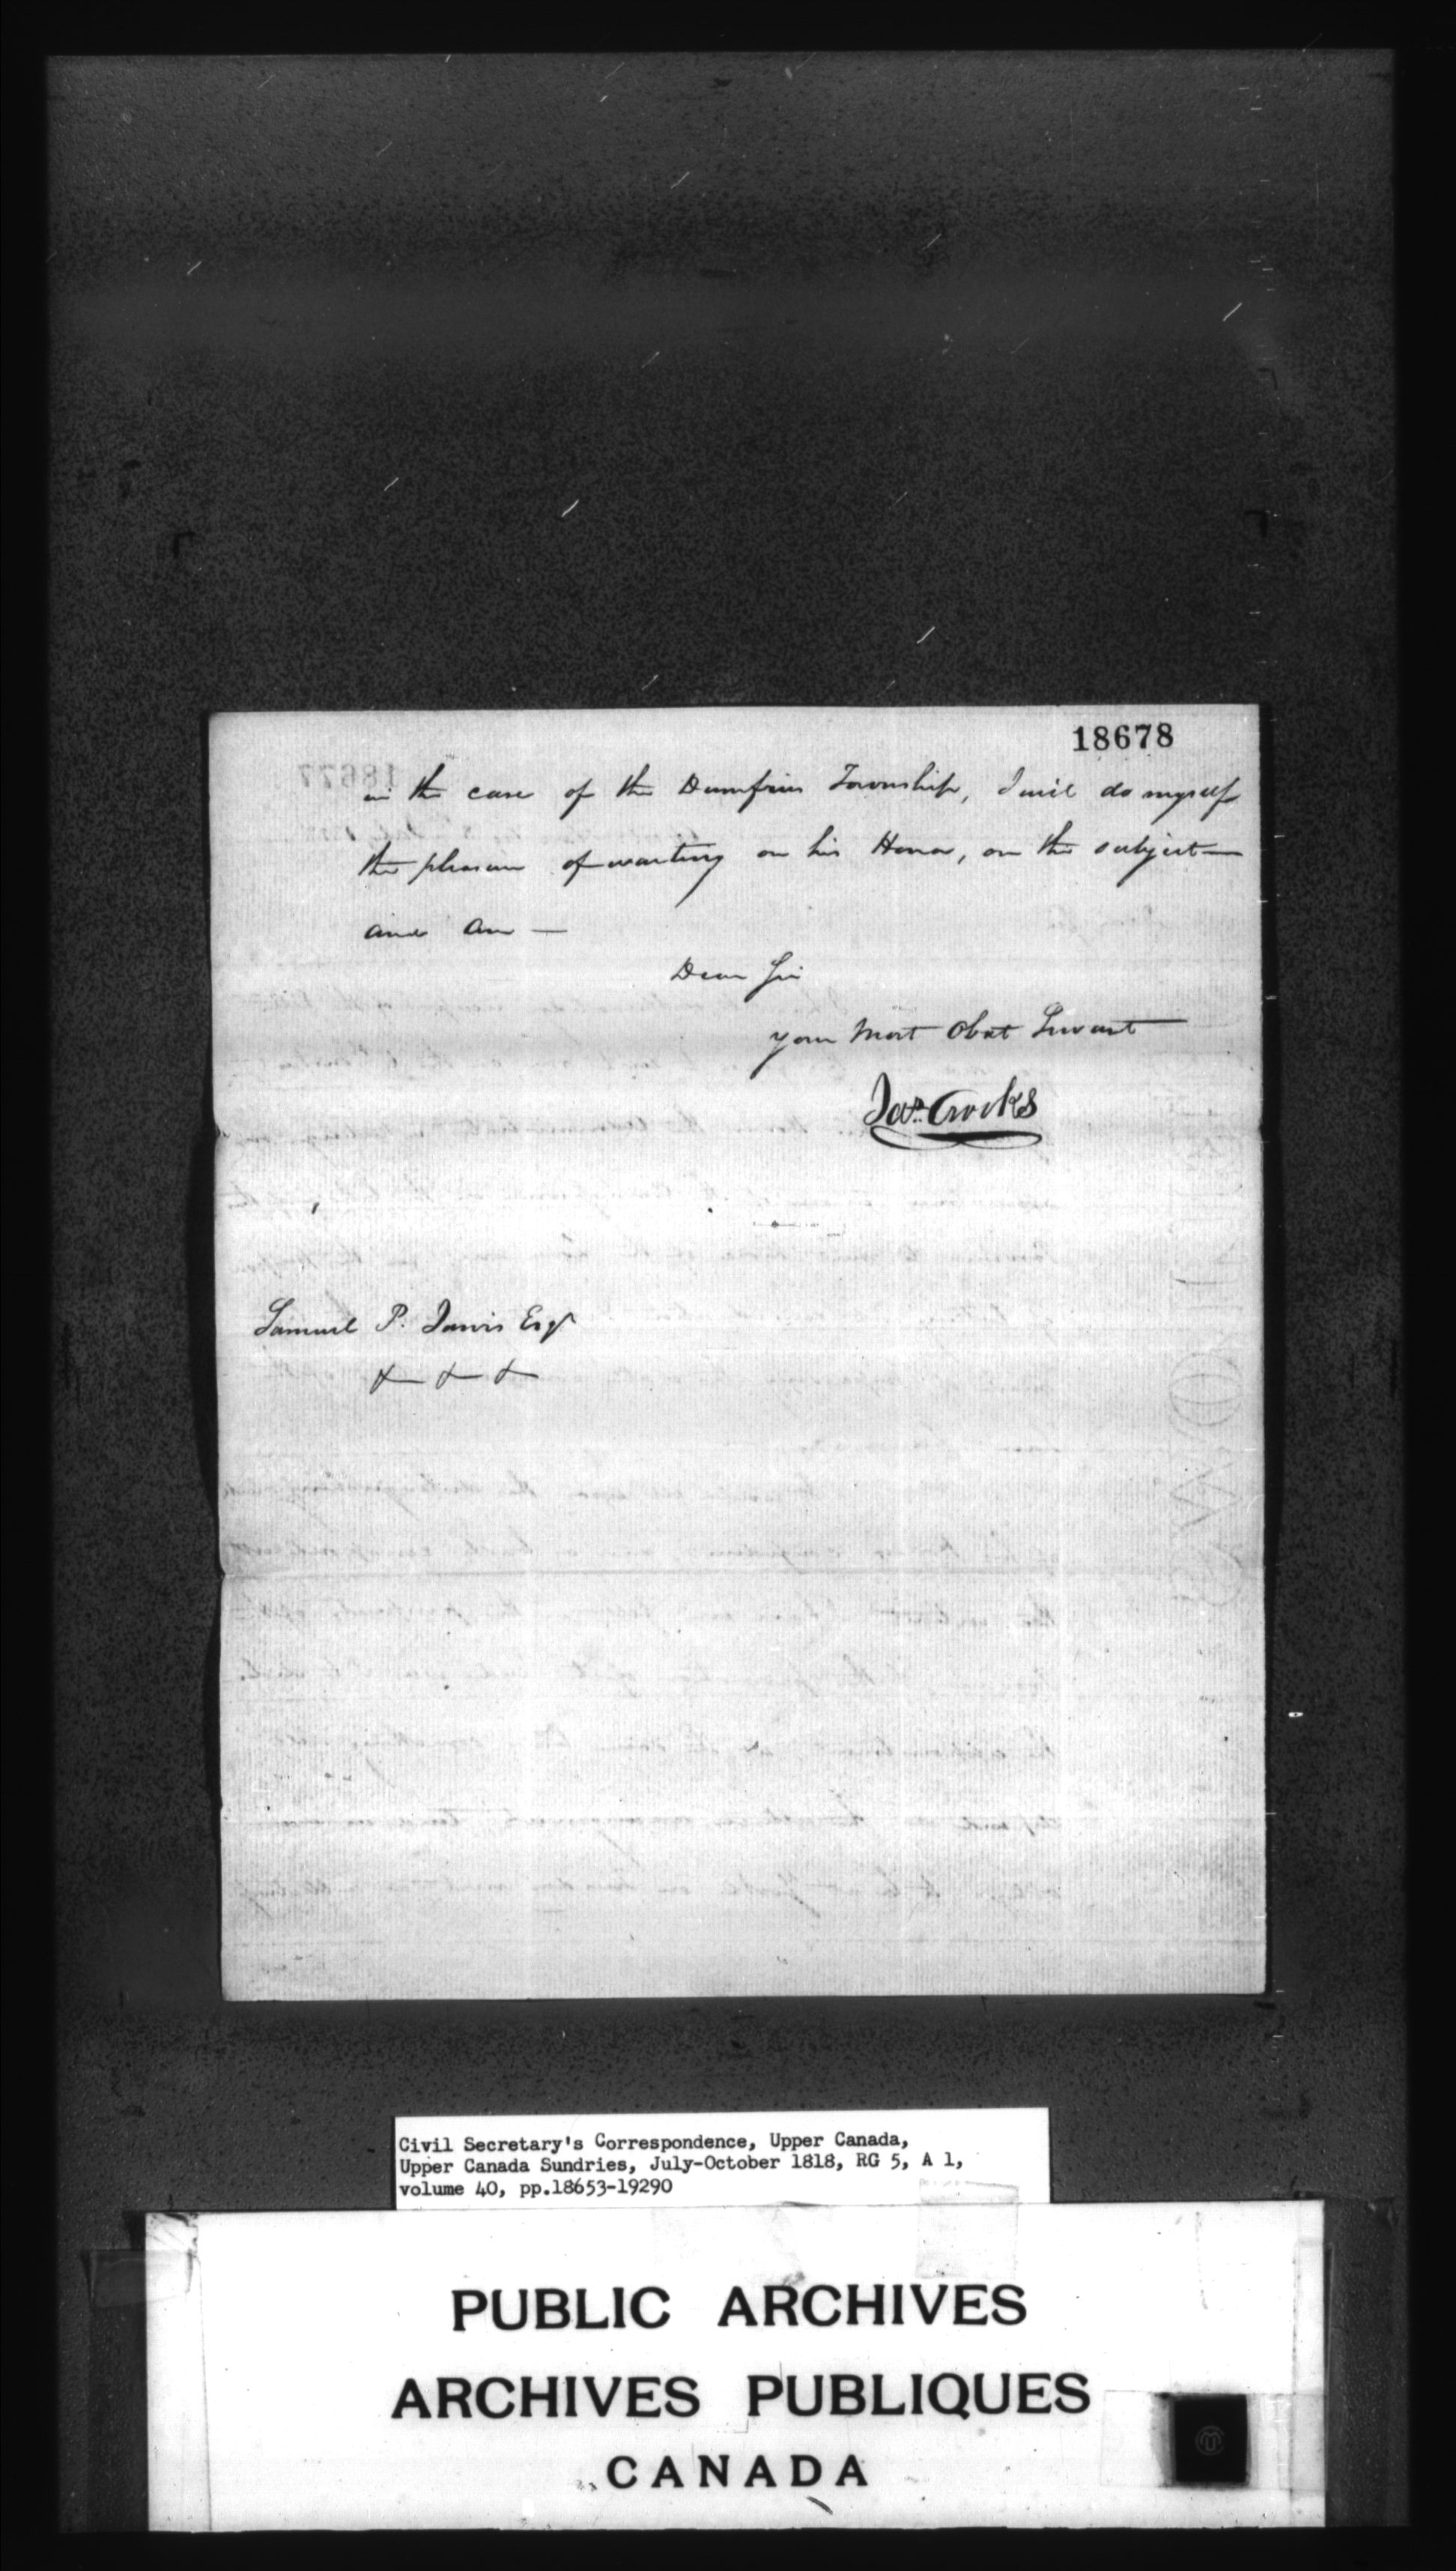 18678
in the case of the Dumfries Township, I will do myself
the pleasure of waiting on his Honor, on the subject—
and am —
Dear Sir
your Most Obdt Servant
Jas. Crooks
Samuel P. Jarvis Esqr
+ + +
Civil Secretary's Correspondence, Upper Canada,
Upper Canada Sundries, July-October 1818, RG 5, A 1,
volume 40, pp.18653-19290
PUBLIC ARCHIVES
ARCHIVES PUBLIQUES
CANADA